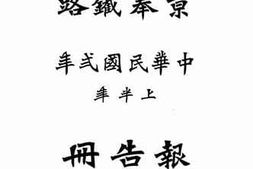 京奉鐵路
中華民國弍年
上半年
報告冊